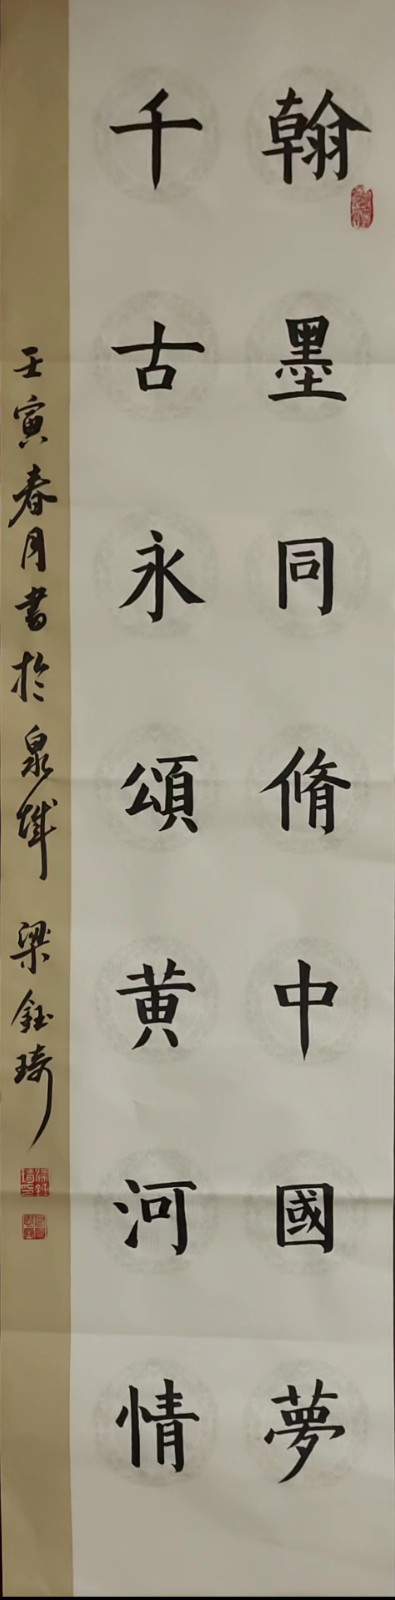 翰墨同脩中國夢
千古永頌黄河情
壬寅春月書於泉城 梁鈺琦